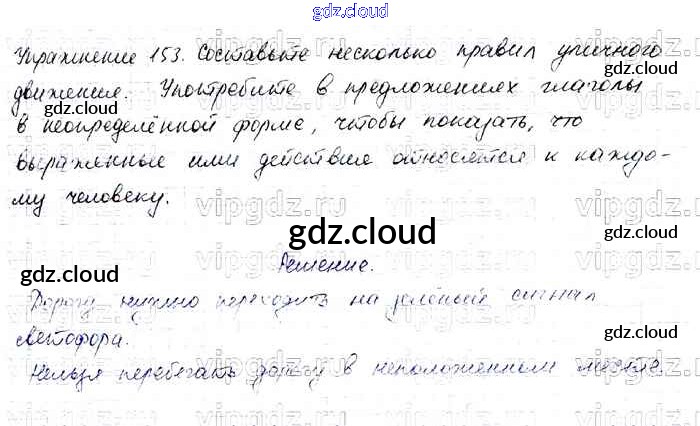 gdz.cloud
Упражнение 153. Составьте несколько правил уличного
движения. Употребите в предложениях глаголы
gdz.cloud
gdz.cloud
в неопределённой форме, чтобы показать, что
выраженные ими действия относятся к каждо-
му человеку.
vipgdz.ru
gdz.cloud
gdz.cloud
gdz.cloud
Решение.
gdz.cloud
Дорогу нужно переходить на зелёный сигнал
светофора.
gdz.cloud
Нельзя перебегать дорогу в неположенном месте.
gdz.cloud
gdz.cloud